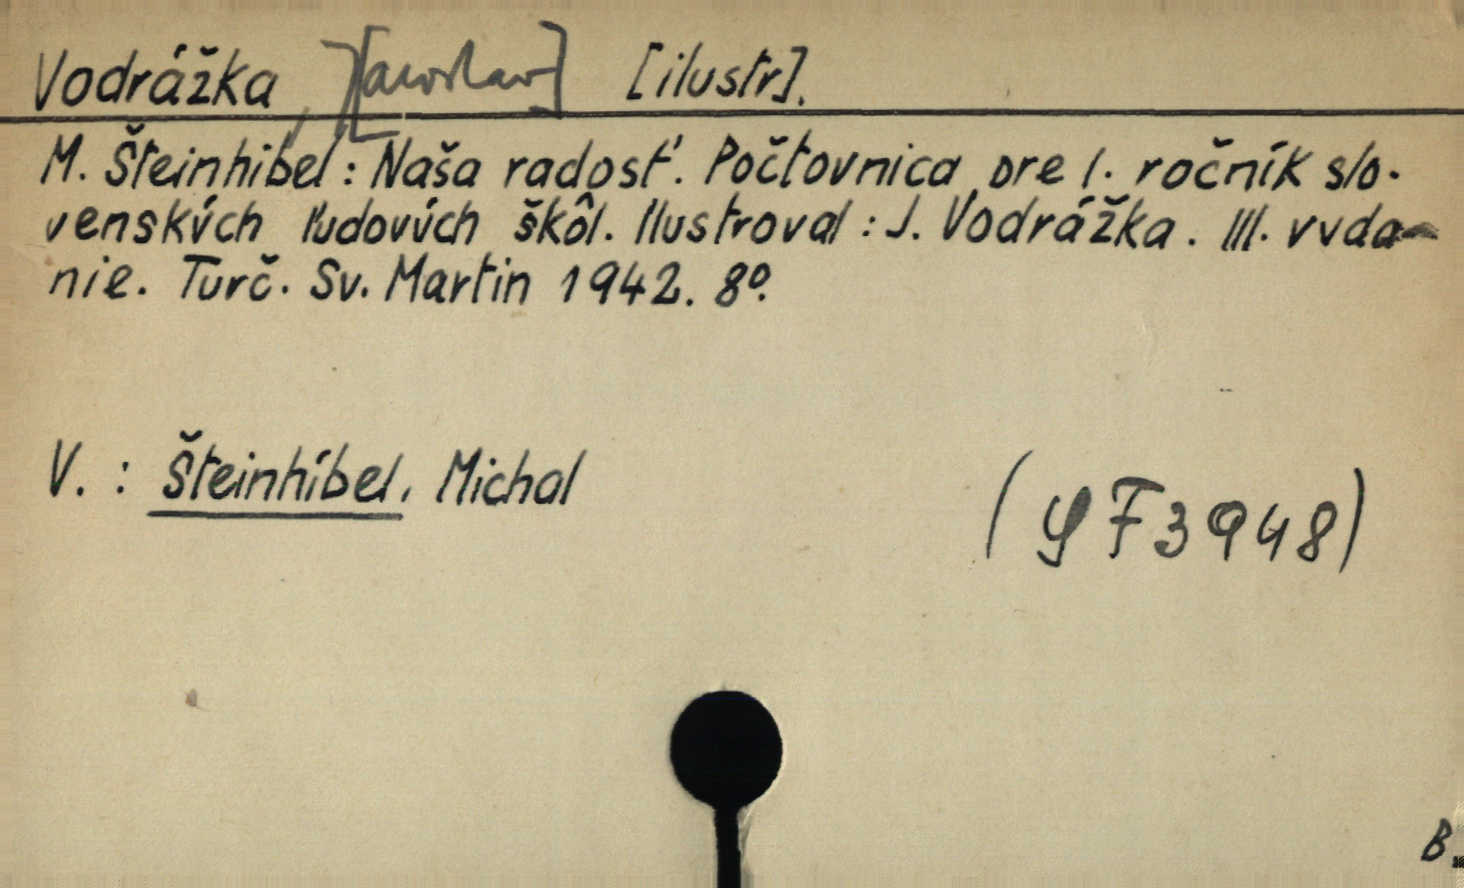 Vodrážka, J[aroslav] [ilustr].
M. Šteinhíbel: Naša radosť. Počtovnica pre I. ročník slo-
venských ľudových škôl. Ilustroval: J. Vodrážka. III. vyda-
nie. Turč. Sv. Martin 1942. 8º.
V. : Šteinhíbel, Michal
(YF3948)
B